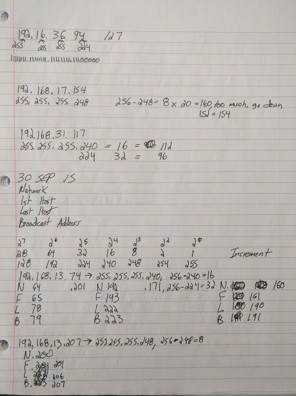 192.16.36.94 /27
255 255 255 224
11111111.11111111.11111111.11100000
192.168.17.154
255.255.255.248 256-248=8 x 20=160, too much, go down
152=154
192.168.31.117
255.255.255.240 = 16 = 112
224 32 = 96
30 SEP 15
Network
1st Host
Last Host
Broadcast Address
2⁷ 2⁶ 2⁵ 2⁴ 2³ 2² 2¹ 2⁰
64 32 16 8 2 1 Increment
128 192 224 240 248 254 255
192.168.13.74 → 255.255.255.240, 256-240=16
N 64 .201 N 192 .171, 256-224=32 N. 160
F 65 F 193 F 161
L 78 L 222 L 190
B 79 B 223 B 191
192.168.13.207 → 255.255.255.248, 256-248=8
N. 200
F. 201
L. 206
B. 207